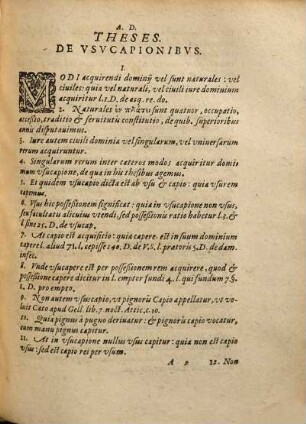 A. D.
THESES.
DE VSVCAPIONIBVS.
I.
MODI acquirendi dominij vel sunt naturales: vel
ciuiles: quia vel naturali, vel ciuili iure dominium
acquiritur l. 1. D. de acq. re. do.
2. Naturales sunt quatuor, occupatio,
accessio, traditio & seruitutis constitutio, de quib. superioribus
annis disputauimus.
3. Iure autem ciuili dominia vel singularum, vel vniuersarum
rerum acquiruntur.
4. Singularum rerum inter cæteros modos acquiritur domi
nium vsucapione, de qua in his thesibus agemus.
5. Et quidem vsucapio dicta est ab vsu & capio: quia vsu rem
capimus.
6. Vsus hic possessionem significat: quia in vsucapione non vsus,
seu facultatis alicuius vtendi, sed possessionis ratio habetur l. 3. &
l. sine 25. D. de vsucap.
7. At capio est acquisitio: quia capere est in suum dominium
capere l. aliud 71. l. cepisse 140. D. de V. S. l. prætoris 5. D. de dam.
infec.
8. Vnde vsucapere est per possessionem rem acquirere, quod &
possessione capere dicitur in l. emptor fundi 4. l. qui fundum 7. §.
1. D. pro empto.
9. Non autem vsus capio, vt pignoris Capio appellatur, vt vo-
luit Cato apud Gell. lib. 7. noct. Attic. c. 10.
10. Quia pignus à pugno deriuatur: & pignoris capio vocatur,
cum manu pignus capitur.
11. At in vsucapione nullus vsus capitur: quia non est capio
vsus: sed est capio rei per vsum.
A 2 12. Non